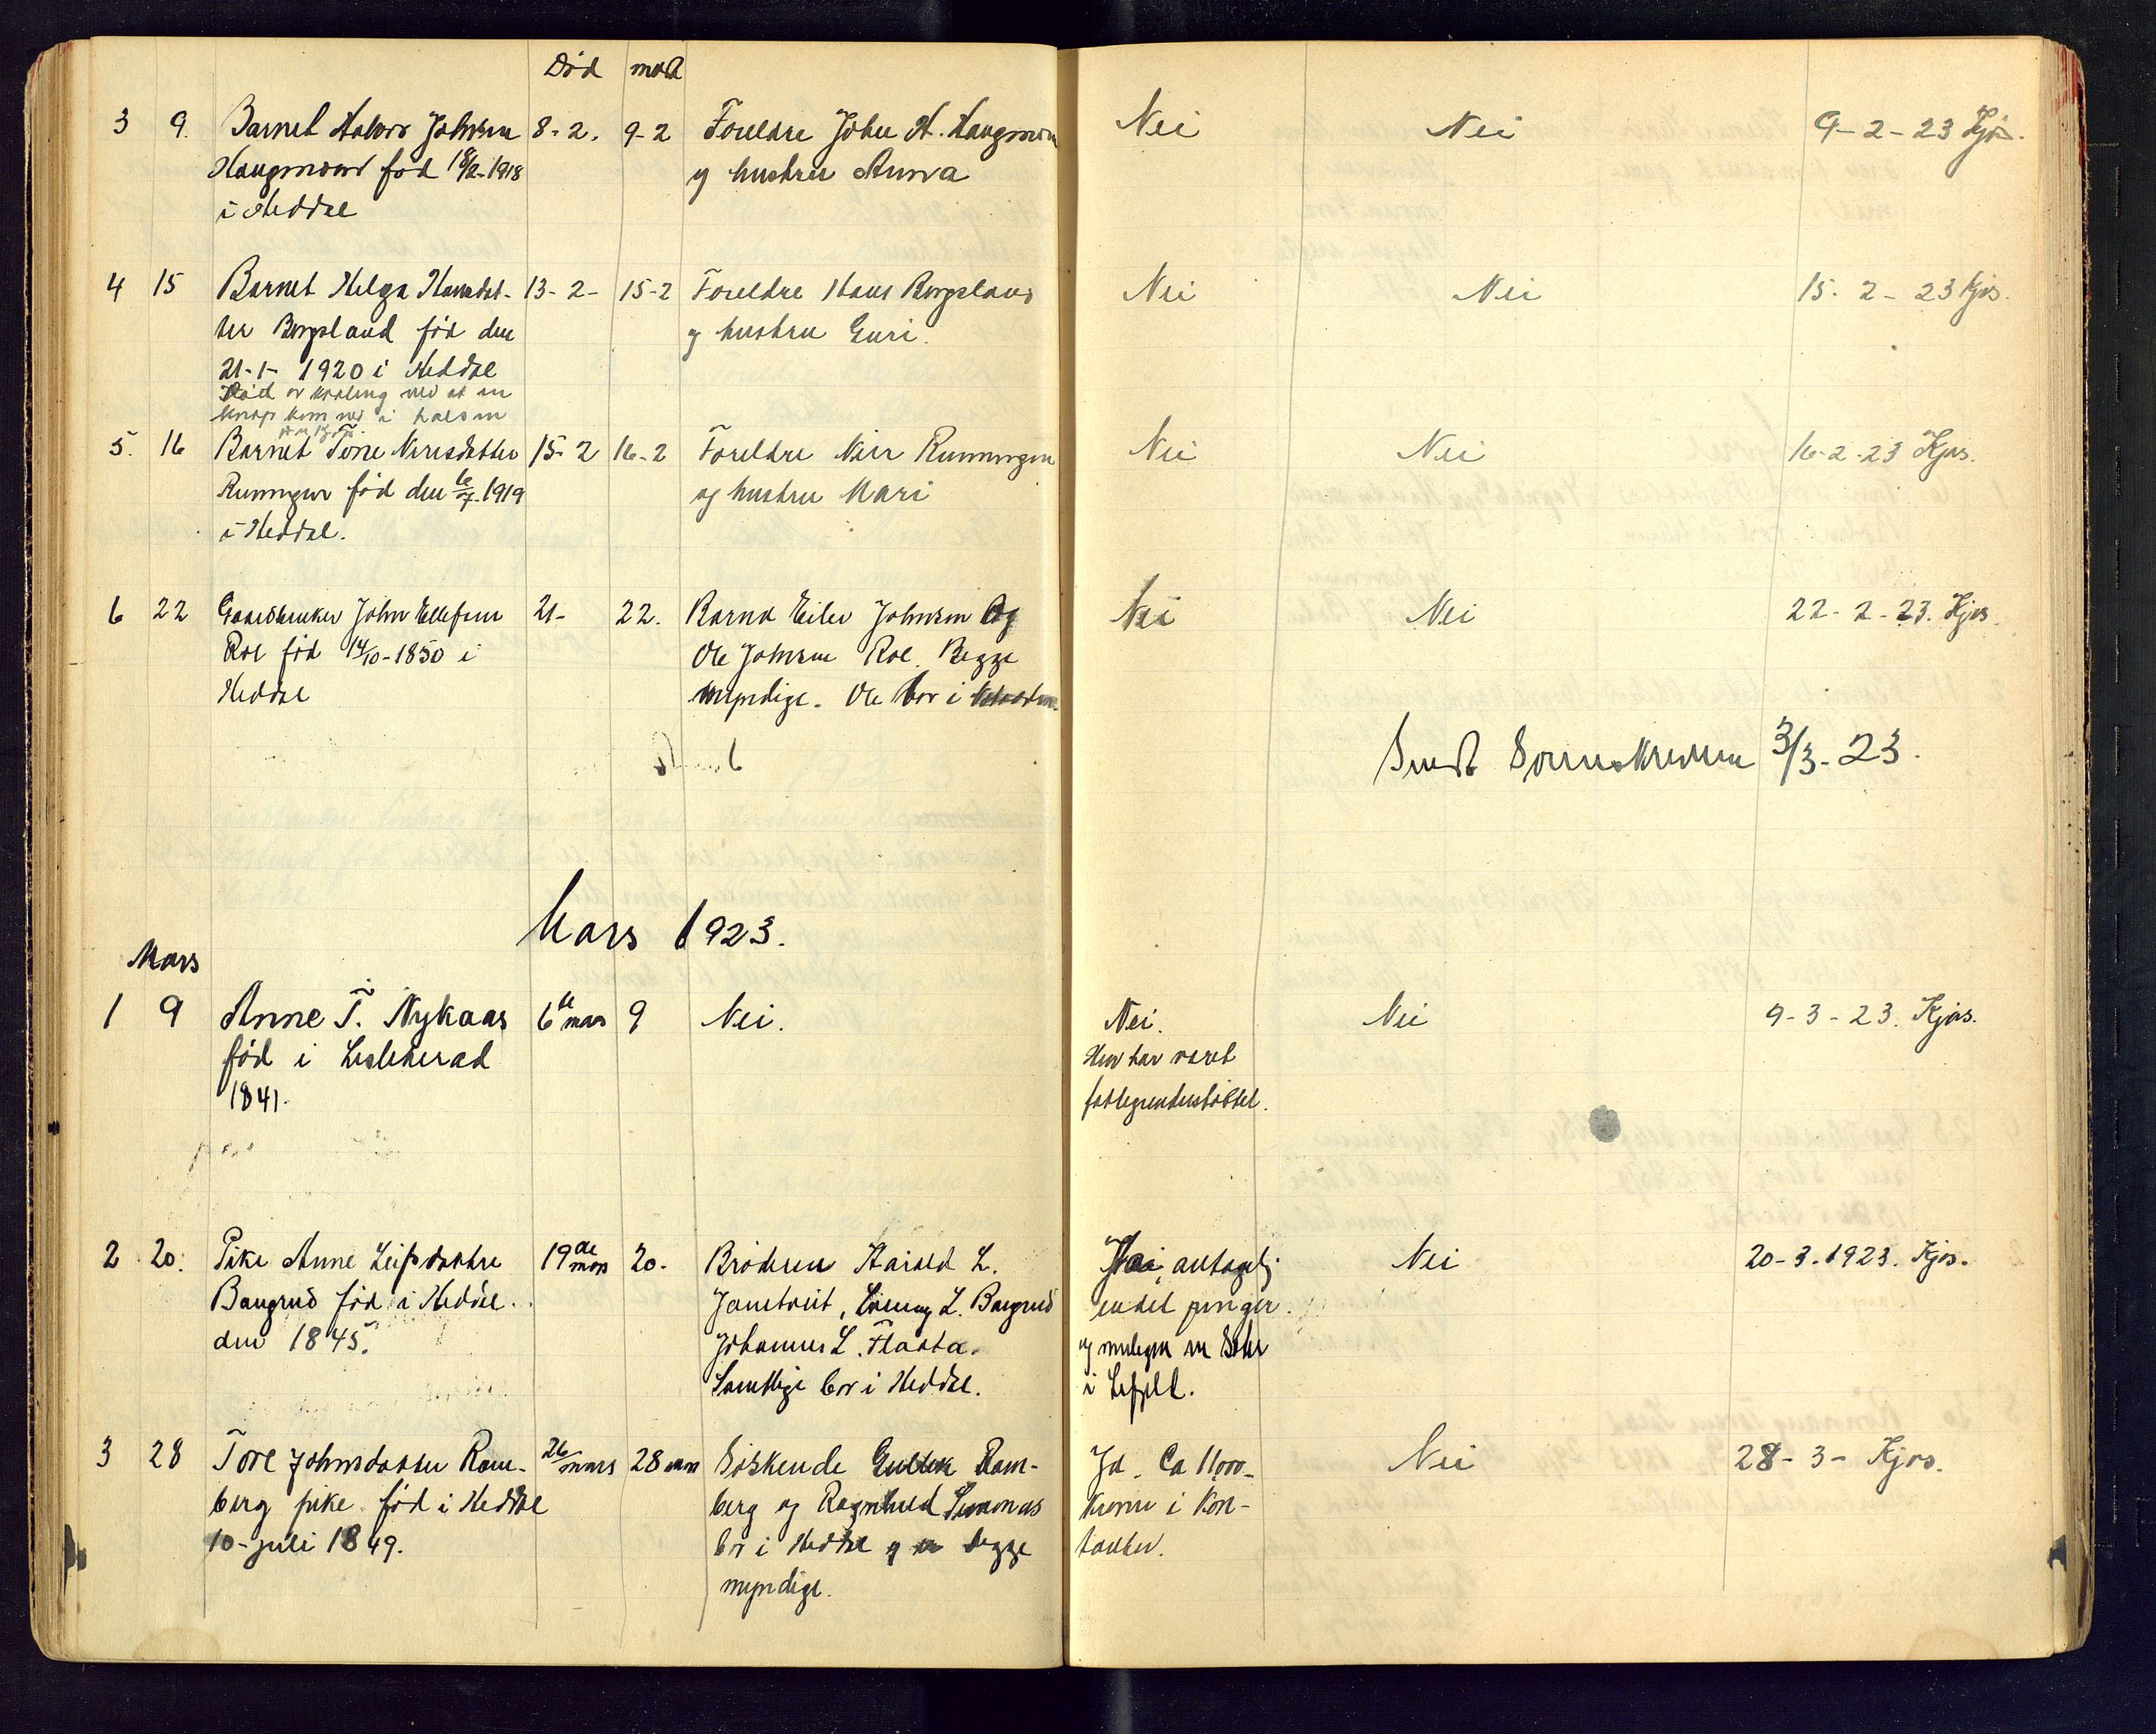 Død mod
3 9. Barnet Halvor Johnsen 8-2. 9-2 Foreldre John H. Haugmoen Nei Nei 9-2-23 Kjos.
Haugmoen fød 18/2-1918 og hustru Anna
i Heddal
4 15 Barnet Helga Hansdat- 13-2- 15-2 Foreldre Hans Bergsland Nei Nei 15-2-23 Kjos.
ter Bergsland fød den og hustru Guri.
21-1-1920 i Heddal
Død av kvæling ved at en
knap kom ned i halsen
5. 16 Barnet Tone Nirisdatter 15-2 16-2 Foreldre Nirir Runningen Nei Nei 16-2-23 Kjos.
Runningen fød den 6/7-1919 og hustru Mari
i Heddal.
6 22 Gaardbruker John Ellefsen 21- 22. Barna Eilev Johnsen Og Nei Nei 22-2-23. Kjos.
Roe fød 14/10-1850 i Ole Johnsen Roe. Begge
Heddal myndige. Ole bor i
Sendt Sorenskriveren 3/3-23.
Mars 1923.
Mars
1 9 Anne T. Nykaas 6te mars 9 Nei. Nei. Nei 9-3-23. Kjos.
fød i Lesteherad Hun har været
1841. fattigunderstøttet.
2 20. Pike Anne Leifsdatter 19de mars 20. Brødrene Harald L. Ja, antagelig Nei 20-3.1923. Kjos.
Baugrud fød i Heddal. Jamtveit, L. Baugrud endel penger.
den 1845. Johannes L. Flaata. og muligens en Seter
Samtlige bor i Heddal. i Lifjell.
3 28 Tone Johnsdatter Ram- 26/mars 28 mars Søskende Gullek Ram- Ja. Ca 11,000- Nei 28-3- Kjos.
berg pike fød i Heddal berg og Ragnhild kroner i Kon-
10-juli 1849. bor i Heddal og er begge tanter.
myndige.